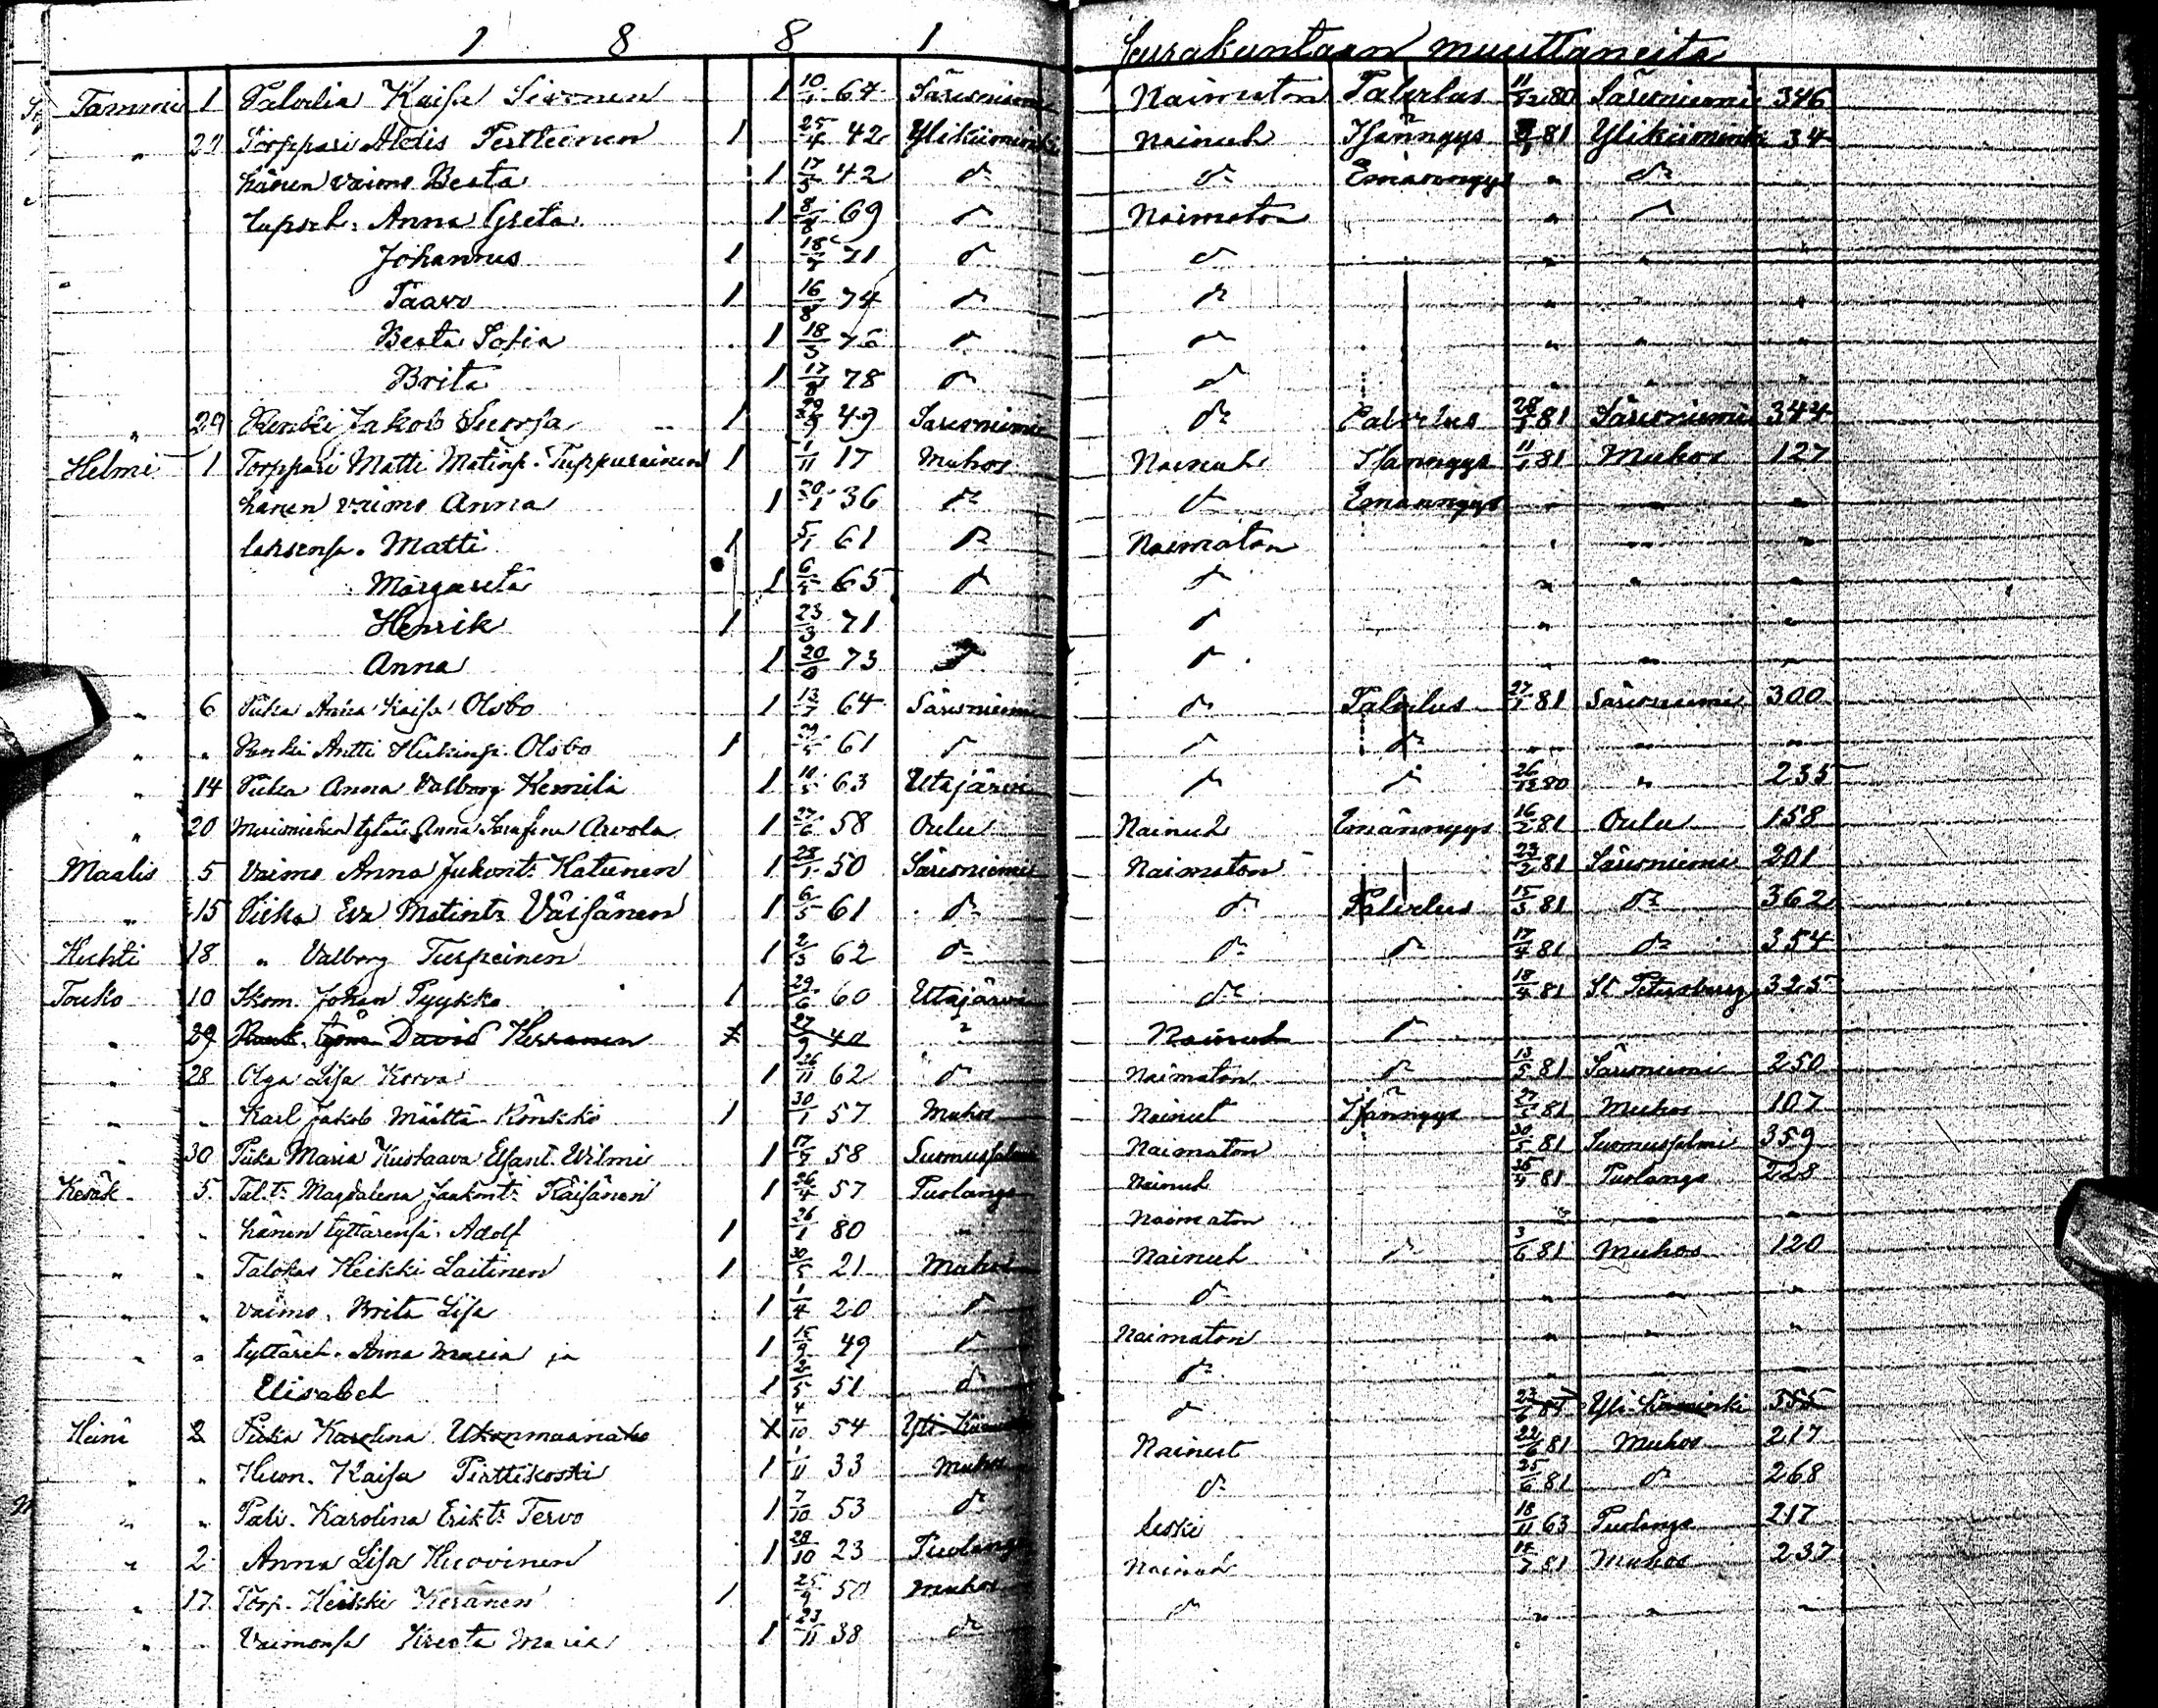 1 8 8 1 Seurakuntaan muuttaneita
Tammi 1 Palvelia Kaisa Sivonen 1 10/1 64 Säresniemi Naimaton Palvelus 11/12 80 Säresniemi 346
" Torppari Aldis Perttunen 1 25/4 42 Ylikiiminki Nainut Isännyys 81 Ylikiiminki 34
hänen vaimo Beata 1 17/5 42 do do Emännyys " do
lapset: Anna Greta 1 8/8 69 do Naimaton " do
Johannes 1 18/7 71 do do " " "
Paavo 1 16/8 74 do do " " "
Beata Sofia 1 18/5 76 do do " " "
Brita 1 17/8 78 do do " " "
" 29 Renki Jakob Suorsa 1 49 Säresniemi do Palvelus 28/1 81 Säresniemi 344
Helmi 1 Torppari Matti Matinp. Tuppurainen 1 1/11 17 Muhos Nainut Isännyys 11/1 81 Muhos 127
hänen vaimo Anna 1 20/1 36 do do Emännyys " " "
lapsensa. Matti 1 5/1 61 do Naimaton " " "
Margareta 1 6/5 65 do do " " "
Henrik 1 23/3 71 do " " "
Anna 1 20/9 73 do do " " "
" 6 Piika Anna Kaisa Olsbo 1 13/7 64 Säresniemi do Palvelus 27/1 81 Säresniemi 300
" " Renki Antti Heikinp. Olsbo 1 29/5 61 do do do " " "
" 14 Piika Anna Valborg Kemilä 1 63 Utajärvi do do 26/12 80 " 235
" 20 Merimiehen tytär Anna Serafina Arvola 1 27/6 58 Oulu Nainut Emännyys 16/2 81 Oulu 158
Maalis 5 Vaimo Anna Jukont. Katunen 1 28/1 50 Säresniemi Naimaton 23/2 81 Säresniemi 201
" 15 Piika Eva Matintr Väisänen 1 6/5 61 do do Palvelus 15/3 81 do 362
Huhti 18 " Valborg Turpeinen 1 2/3 62 do do do 17/4 81 do 354
Touko 10 Skom. Johan Pyykkö 1 29/6 60 Utajärvi do 18/4 81 St Petersburg 325
" 29 David Herranen 1 27/9 40 " Nainut do
" 28 Olga Lisa Korva 1 26/11 62 do Naimaton do 13/5 81 Säresniemi 250
" " Karl Jakob Määttä Könkkö 1 30/1 57 Muhos Nainut Isännyys 27/5 81 Muhos 107
" 30 Piika Maria Kustaava Elsant. Wilmi 1 17/7 58 Suomussalmi Naimaton 30/5 81 Suomussalmi 359
Kesäk. 5 Tal.tr Magdalena Jaakontr Räisänen 1 26/4 57 Puolanga Nainut 81 Puolanga 228
" " hänen tyttärensä. Adolf 1 26/1 80 " Naimaton " " "
" " Talokas Heikki Laitinen 1 30/5 21 Muhos Nainut do 3/6 81 Muhos 120
" " vaimo. Brita Lisa 1 1/4 20 do do " " "
" " tyttäret. Anna Maria ja 1 15/9 49 do Naimaton " " "
Elisabet 1 2/5 51 do do " " "
Heinä 2 Piika Karolina Ukonmaanaho 1 4/10 54 Yli-Kiiminki do 23/6 81 Yli-Kiiminki 355
" " Huon. Kaisa Pirttikoski 1 1/11 33 Muhos Nainut 22/6 81 Muhos 217
" " Palv. Karolina Eriktr Tervo 1 7/10 53 do do 25/6 81 do 268
" 2 Anna Lisa Huovinen 1 28/10 23 Puolanga leski 18/11 63 Puolanga 217
" 17 Torp. Heikki Keränen 1 25/9 50 Muhos Nainut 14/7 81 Muhos 237
" " Vaimonsa Kreeta Maria 1 23/11 38 do do " " "